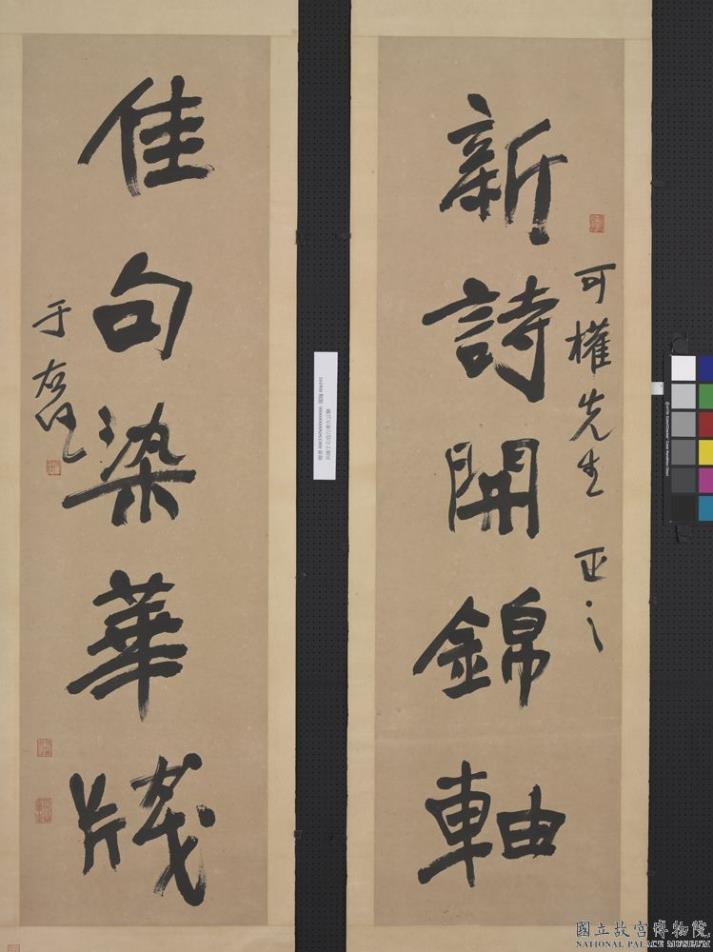 新詩開錦軸
可權先生 正之
佳句染華牋
于右任
國立故宮博物院
NATIONAL PALACE MUSEUM